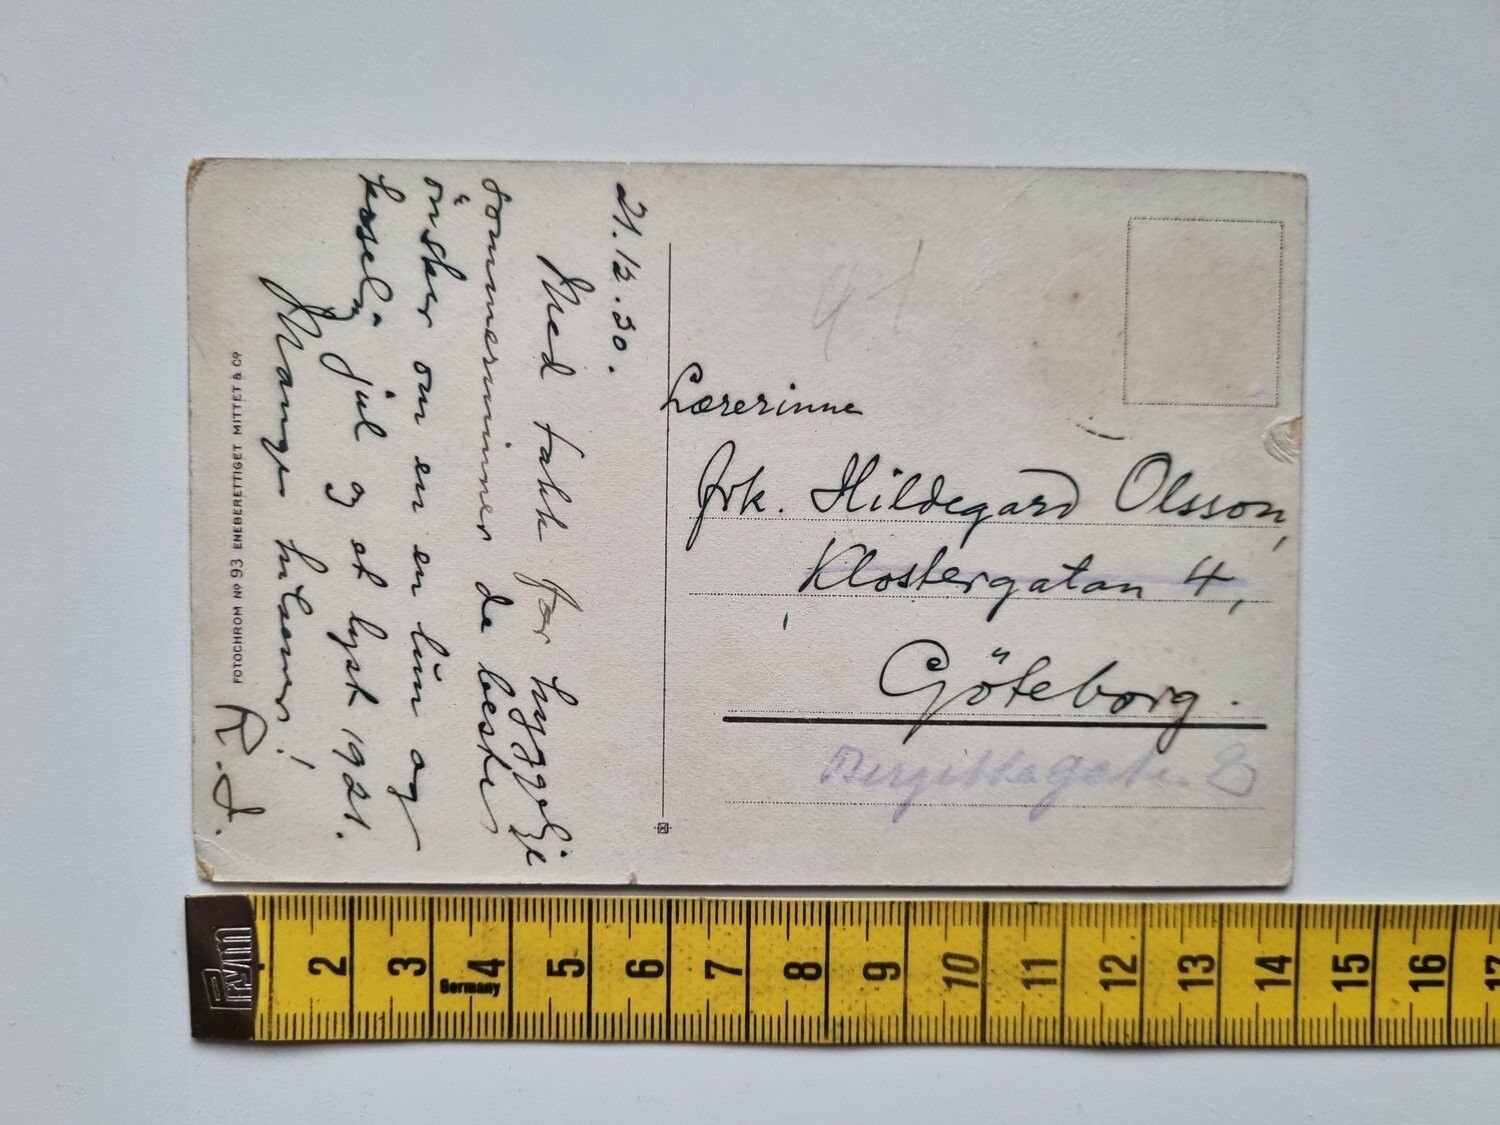 21.12.30.
Med takk for hyggelige
sommerminner de beste
önsker om en en lun og
koselig jul og et lyst 1931.
Mange hilsener!
R. J.
FOTOCHROM No 93 ENEBERETTIGET MITTET & Co
41
Lærerinne
frk. Hildegard Olsson,
Klostergatan 4,
Göteborg.
Birgittagat. 8
Prym
2 3 4 5 6 7 8 9 10 11 12 13 14 15 16 17
Germany